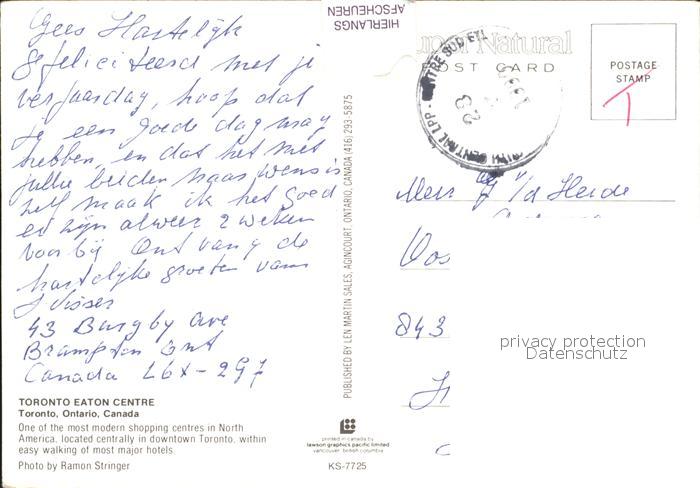 Gees Hartelijk
gefeliciteerd met je
verjaardag, hoop dat
je een goede dag mag
hebben, en dat het met
jullie beiden naar wens is
zelf maak ik het goed
er zijn alweer 2 weken
voorbij Ontvang de
hartelijke groeten van
J Visser
43 Burgby Ave
Brampton Ont
Canada L6X-2G7
TORONTO EATON CENTRE
Toronto, Ontario, Canada
One of the most modern shopping centres in North
America, located centrally in downtown Toronto, within
easy walking of most major hotels.
Photo by Ramon Stringer
HIERLANGS
AFSCHEUREN
PUBLISHED BY LEN MARTIN SALES, AGINCOURT, ONTARIO, CANADA (416) 293-5875
printed in canada by
lawson graphics pacific limited
vancouver, british columbia
KS-7725
Natural
POST CARD
POSTAGE
STAMP
T
v/d Heide
843
privacy protection
Datenschutz